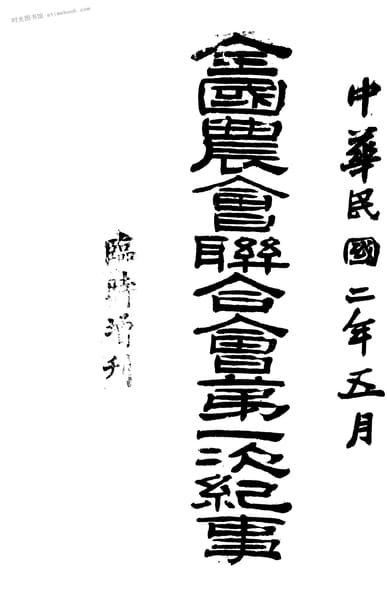 时光图书馆 stimebook.com
中華民國二年五月
全國農會聯合會第一次紀事
臨時增刊